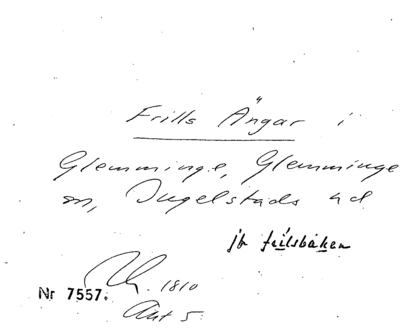 Frills Ängar i
Glemminge, Glemminge
sn, Ingelstads hd
jfr frilsbaken
Rk. 1810
Nr 7557.
Akt 5.